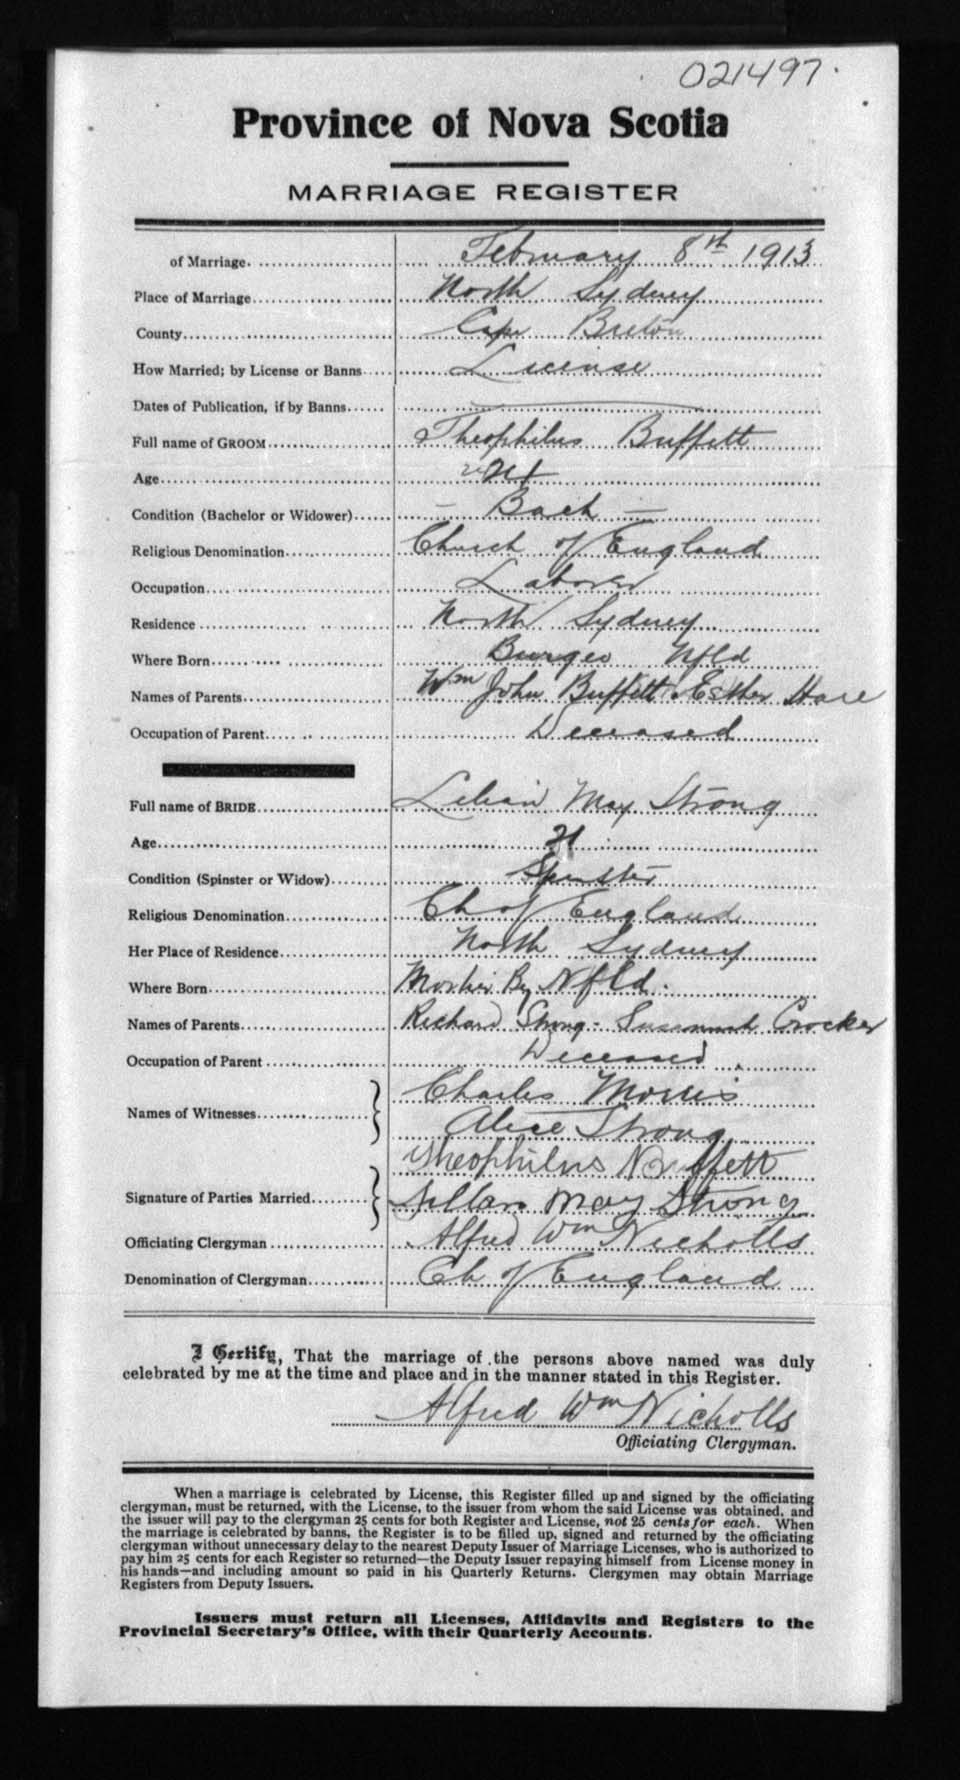 021497.
Province of Nova Scotia
MARRIAGE REGISTER
of Marriage. February 8th 1913
Place of Marriage North Sydney
County Cape Breton
How Married; by License or Banns License
Dates of Publication, if by Banns
Full name of GROOM Theophilus Buffett
Age 21
Condition (Bachelor or Widower) — Bach —
Religious Denomination Church of England
Occupation Laborer
Residence North Sydney
Where Born Burgeo Nfld
Names of Parents Wm John Buffett Esther Hare
Occupation of Parent Deceased
Full name of BRIDE Lilian May Strong
Age 21
Condition (Spinster or Widow) Spinster
Religious Denomination Ch of England
Her Place of Residence North Sydney
Where Born By Nfld.
Names of Parents Richard Strong - Susannah Crocker
Occupation of Parent Deceased
Names of Witnesses Charles Morris
Alice Strong
Theophilus Buffett
Signature of Parties Married Lillan May Strong
Officiating Clergyman Alfred Wm Nicholls
Denomination of Clergyman Ch of England
I Certify, That the marriage of the persons above named was duly
celebrated by me at the time and place and in the manner stated in this Register.
Alfred Wm Nicholls
Officiating Clergyman.
When a marriage is celebrated by License, this Register filled up and signed by the officiating
clergyman, must be returned, with the License, to the issuer from whom the said License was obtained, and
the issuer will pay to the clergyman 25 cents for both Register and License, not 25 cents for each. When
the marriage is celebrated by banns, the Register is to be filled up, signed and returned by the officiating
clergyman without unnecessary delay to the nearest Deputy Issuer of Marriage Licenses, who is authorized to
pay him 25 cents for each Register so returned—the Deputy Issuer repaying himself from License money in
his hands—and including amount so paid in his Quarterly Returns. Clergymen may obtain Marriage
Registers from Deputy Issuers.
Issuers must return all Licenses, Affidavits and Registers to the
Provincial Secretary's Office, with their Quarterly Accounts.